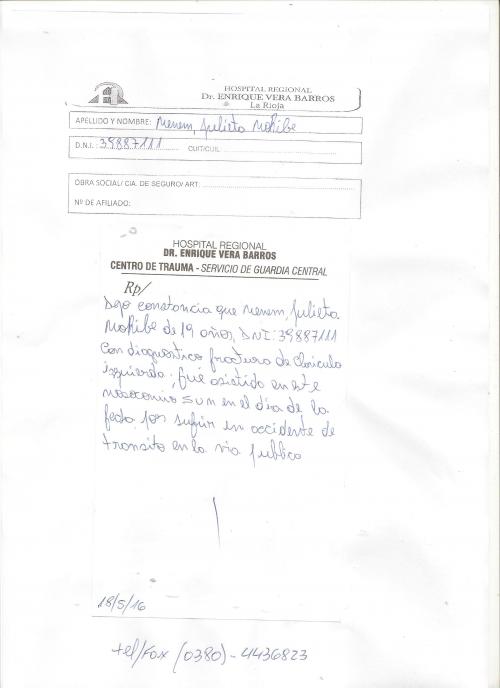 HOSPITAL REGIONAL
Dr. ENRIQUE VERA BARROS
La Rioja
APELLIDO Y NOMBRE: Menem, Julieta Noribe
D.N.I.: 39887111 CUIT/CUIL:
OBRA SOCIAL/ CIA. DE SEGURO/ ART:
Nº DE AFILIADO:
HOSPITAL REGIONAL
DR. ENRIQUE VERA BARROS
CENTRO DE TRAUMA - SERVICIO DE GUARDIA CENTRAL
Rp/
Dejo constancia que Menem, Julieta
Noribe de 19 años, DNI: 39887111
Con diagnostico fractura de Clavicula
izquierda; fué asistido en este
nosocomio en el dia de la
fecha por sufrir un accidente de
transito en la via publica
18/5/16
tel/Fax (0380)-4436823